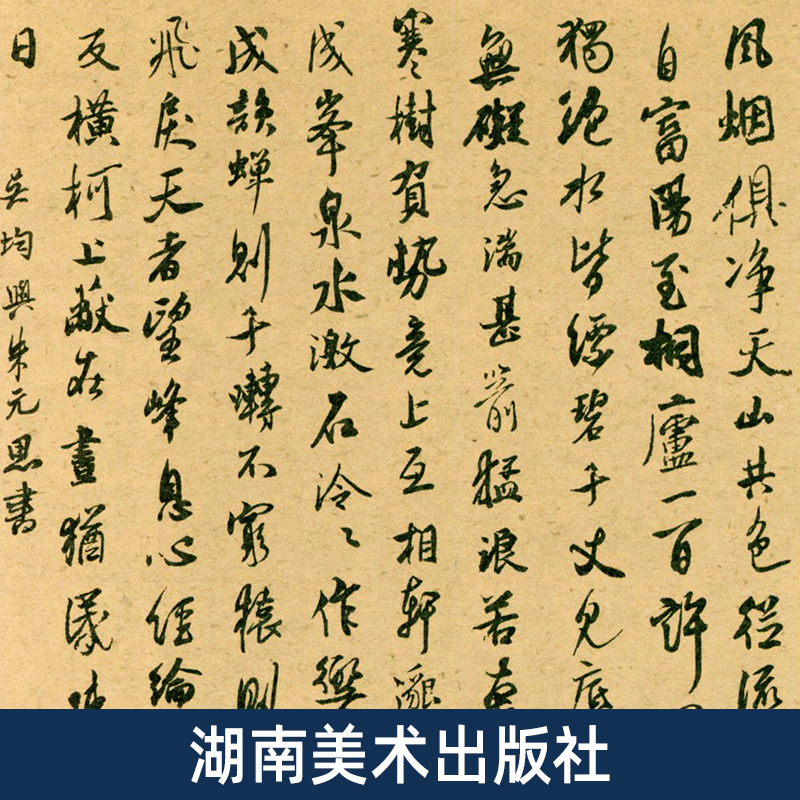 風烟俱净天山共色從流
自富陽至桐廬一百許
獨絶水皆縹碧千丈見底
無礙急湍甚箭猛浪若奔
寒樹負勢竞上互相軒邈
成峯泉水激石泠〻作響
成韻蝉則千囀不窮猿則
飛戾天者望峰息心經綸
反横柯上蔽在晝猶昏
日
吴均與朱元思書
湖南美术出版社